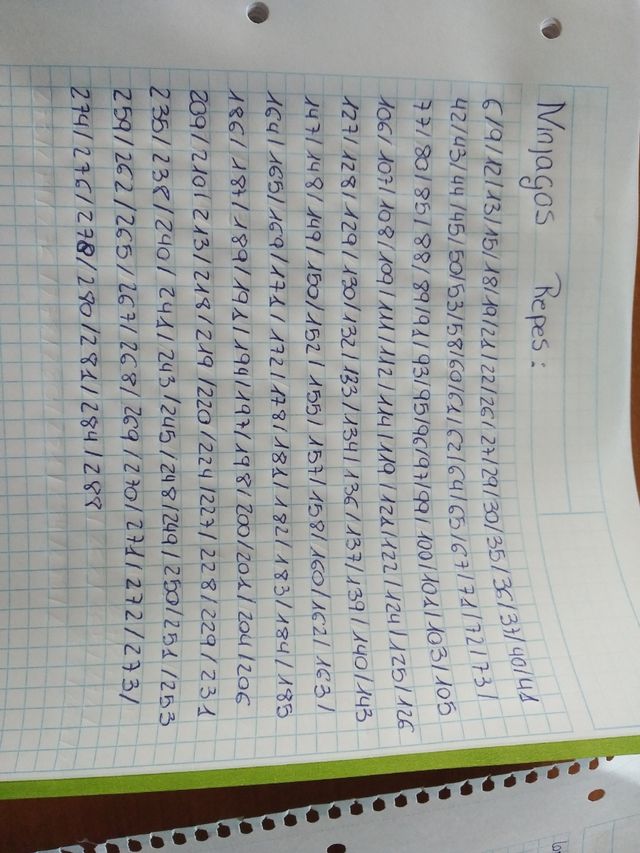 Ninjagos Repes:
6/9/12/13/15/18/19/21/22/26/27/29/30/35/36/37/40/41
42/43/44/45/50/53/58/60/61/62/64/65/67/71/72/73/
77/80/85/88/89/91/93/95/96/97/99/100/101/103/105
106/107/108/109/111/112/114/119/121/122/124/125/126
127/128/129/130/132/133/134/136/137/139/140/143
147/148/149/150/152/155/157/158/160/162/163/
164/165/169/171/172/178/181/182/183/184/185
186/187/189/191/194/197/198/200/201/204/206
209/210/213/218/219/220/224/227/228/229/231
235/238/240/241/243/245/248/249/250/251/253
259/262/265/267/268/269/270/271/272/273/
274/276/278/280/281/284/288